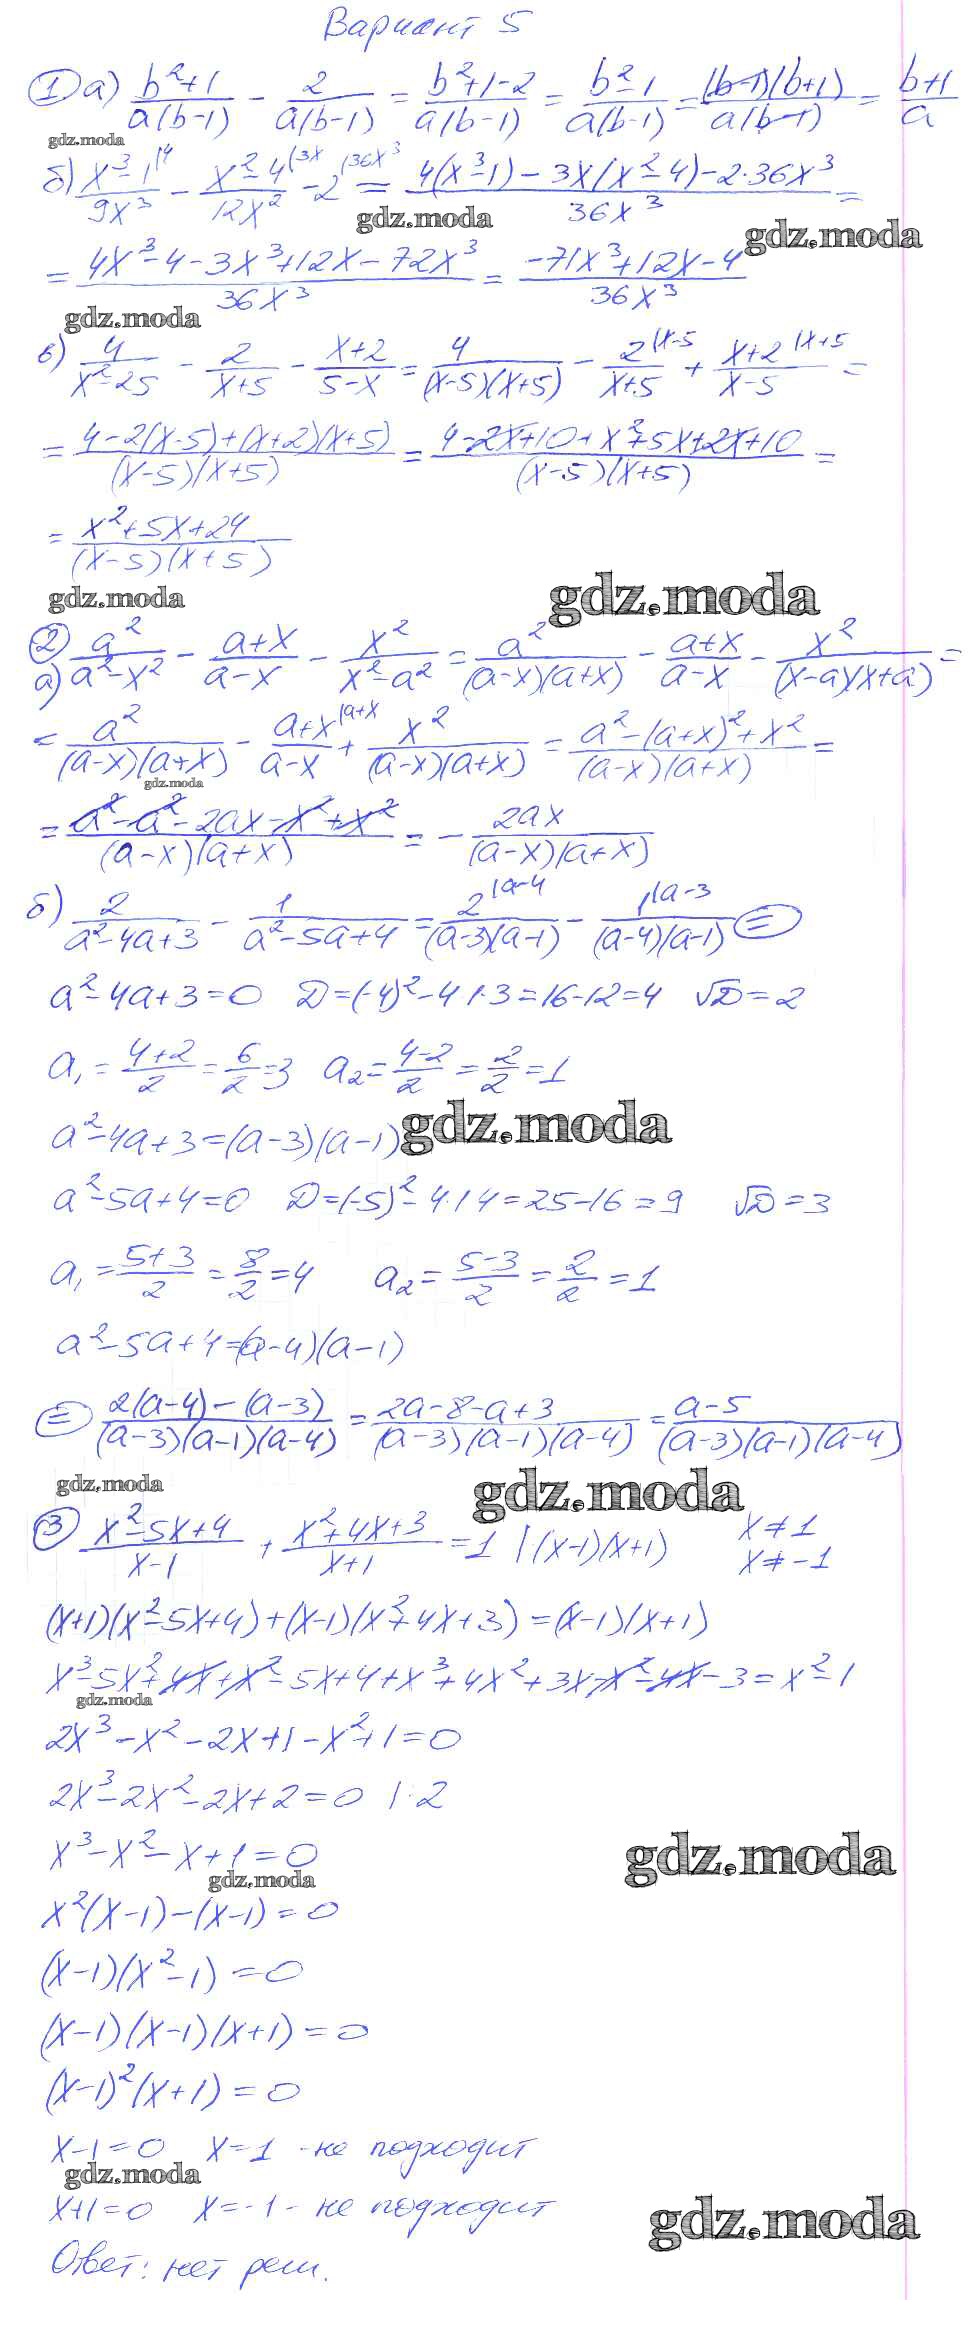 Вариант 5
① а) (b²+1)/(a(b-1)) - 2/(a(b-1)) = (b²+1-2)/(a(b-1)) = (b²-1)/(a(b-1)) = ((b-1)(b+1))/(a(b-1)) = (b+1)/a
gdz.moda
б) (x³-1)/(9x³) |4 - (x²-4)/(12x²) |3x - 2 |36x³ = (4(x³-1)-3x(x²-4)-2·36x³)/(36x³) =
gdz.moda
gdz.moda
= (4x³-4-3x³+12x-72x³)/(36x³) = (-71x³+12x-4)/(36x³)
gdz.moda
в) 4/(x²-25) - 2/(x+5) - (x+2)/(5-x) = 4/((x-5)(x+5)) - 2/(x+5) |x-5 + (x+2)/(x-5) |x+5 =
= (4-2(x-5)+(x+2)(x+5))/((x-5)(x+5)) = (4-2x+10+x²+5x+2x+10)/((x-5)(x+5)) =
= (x²+5x+24)/((x-5)(x+5))
gdz.moda
gdz.moda
② а) a²/(a²-x²) - (a+x)/(a-x) - x²/(x²-a²) = a²/((a-x)(a+x)) - (a+x)/(a-x) - x²/((x-a)(x+a)) =
= a²/((a-x)(a+x)) - (a+x)/(a-x) |a+x + x²/((a-x)(a+x)) = (a²-(a+x)²+x²)/((a-x)(a+x)) =
gdz.moda
= (a²-a²-2ax-x²+x²)/((a-x)(a+x)) = - 2ax/((a-x)(a+x))
б) 2/(a²-4a+3) - 1/(a²-5a+4) = 2/((a-3)(a-1)) |a-4 - 1/((a-4)(a-1)) |a-3 =
a²-4a+3=0 D=(-4)²-4·1·3=16-12=4 √D=2
a₁=(4+2)/2=6/2=3 a₂=(4-2)/2=2/2=1
a²-4a+3=(a-3)(a-1)
gdz.moda
a²-5a+4=0 D=(-5)²-4·1·4=25-16=9 √D=3
a₁=(5+3)/2=8/2=4 a₂=(5-3)/2=2/2=1
a²-5a+4=(a-4)(a-1)
= (2(a-4)-(a-3))/((a-3)(a-1)(a-4)) = (2a-8-a+3)/((a-3)(a-1)(a-4)) = (a-5)/((a-3)(a-1)(a-4))
gdz.moda
gdz.moda
③ (x²-5x+4)/(x-1) + (x²+4x+3)/(x+1) = 1 |·(x-1)(x+1) x≠1
x≠-1
(x+1)(x²-5x+4)+(x-1)(x²+4x+3)=(x-1)(x+1)
x³-5x²+4x+x²-5x+4+x³+4x²+3x-x²-4x-3=x²-1
gdz.moda
2x³-x²-2x+1-x²+1=0
2x³-2x²-2x+2=0 |:2
x³-x²-x+1=0
gdz.moda
gdz.moda
x²(x-1)-(x-1)=0
(x-1)(x²-1)=0
(x-1)(x-1)(x+1)=0
(x-1)²(x+1)=0
x-1=0 x=1 - не подходит
gdz.moda
x+1=0 x=-1 - не подходит
gdz.moda
Ответ: нет реш.